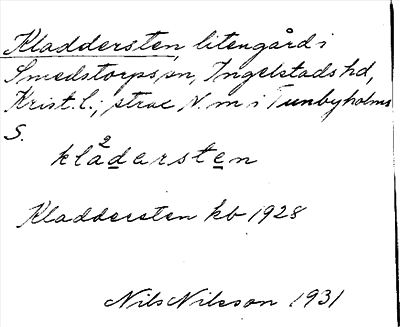 Kladdersten, litengård i
Smedstorps sn, Ingelstads hd,
Krist. l.; strax N. m i Tunbyholms
S.
2
klådersten
Kladdersten kb 1928
Nils Nilsson 1931